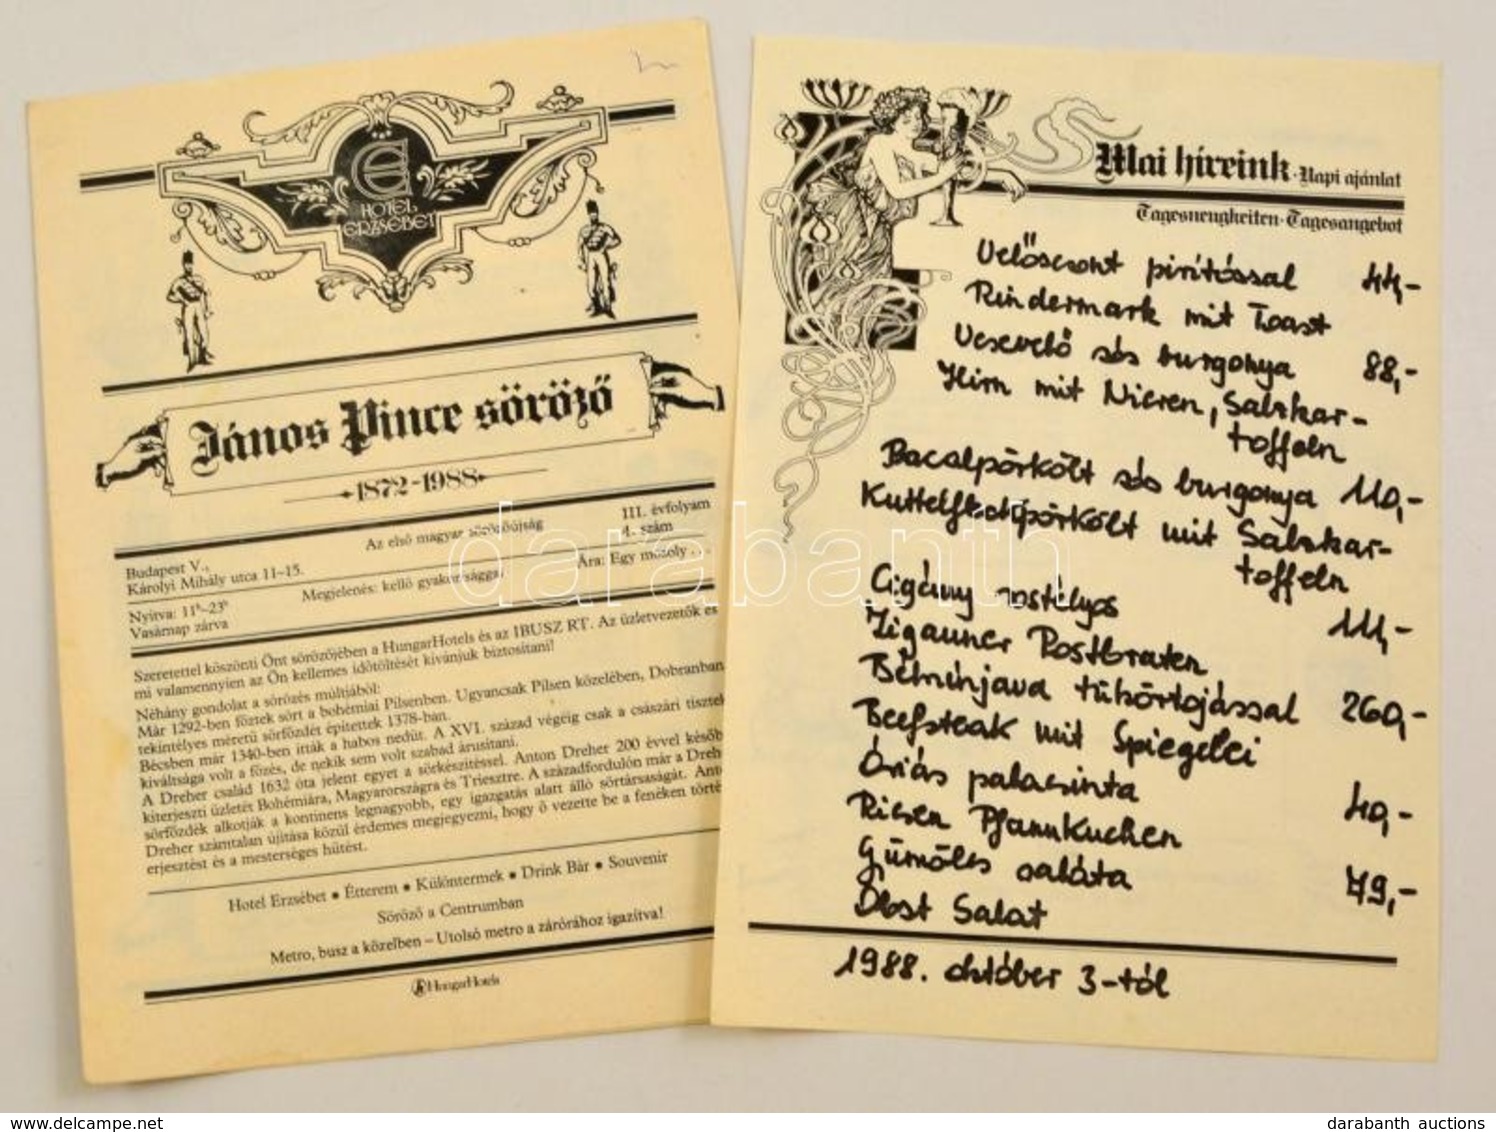 CE
HOTEL
ERZSÉBET
János Pince söröző
1872-1988
Az első magyar sörözőújság
III. évfolyam
4. szám
Budapest V.,
Károlyi Mihály utca 11–15.
Megjelenés: kellő gyakorisággal
Ára: Egy mosoly . . .
Nyitva: 11ʰ–23ʰ
Vasárnap zárva
Szeretettel köszönti Önt sörözőjében a HungarHotels és az IBUSZ RT. Az üzletvezetők és
mi valamennyien az Ön kellemes időtöltését kívánjuk biztosítani!
Néhány gondolat a sörözés múltjából:
Már 1292-ben főztek sört a bohémiai Pilsenben. Ugyancsak Pilsen közelében, Dobranban
tekintélyes méretű sörfőzdét építettek 1378-ban.
Bécsben már 1340-ben itták a habos nedűt. A XVI. század végéig csak a császári tisztek
kiváltsága volt a főzés, de nekik sem volt szabad árusítani.
A Dreher család 1632 óta jelent egyet a sörkészítéssel. Anton Dreher 200 évvel később
kiterjeszti üzletét Bohémiára, Magyarországra és Triesztre. A századfordulón már a Dreher
sörfőzdék alkotják a kontinens legnagyobb, egy igazgatás alatt álló sörtársaságát. Anton
Dreher számtalan újítása közül érdemes megjegyezni, hogy ő vezette be a fenéken törté
erjesztést és a mesterséges hűtést.
Hotel Erzsébet • Étterem • Különtermek • Drink Bár • Souvenir
Söröző a Centrumban
Metro, busz a közelben – Utolsó metro a zárórához igazítva!
HungarHotels
Mai híreink · Napi ajánlat
Tagesneugkeiten · Tagesangebot
Velőscsont pirítóssal 44,-
Rindermark mit Toast
Vesevelő sós burgonya 88,-
Hirn mit Nieren, Salzkar-
toffeln
Pacalpörkölt sós burgonya 110,-
Kuttelfleckpörkölt mit Salzkar-
toffeln
Cigány rostélyos 111,-
Zigauner Rostbraten
Bélszínjava tükörtojással 260,-
Beefsteak mit Spiegelei
Óriás palacsinta 40,-
Riesen Pfannkuchen
Gümölcs saláta 49,-
Obst Salat
1988. október 3-tól
darabanth
delcampe.net
darabanth auctions